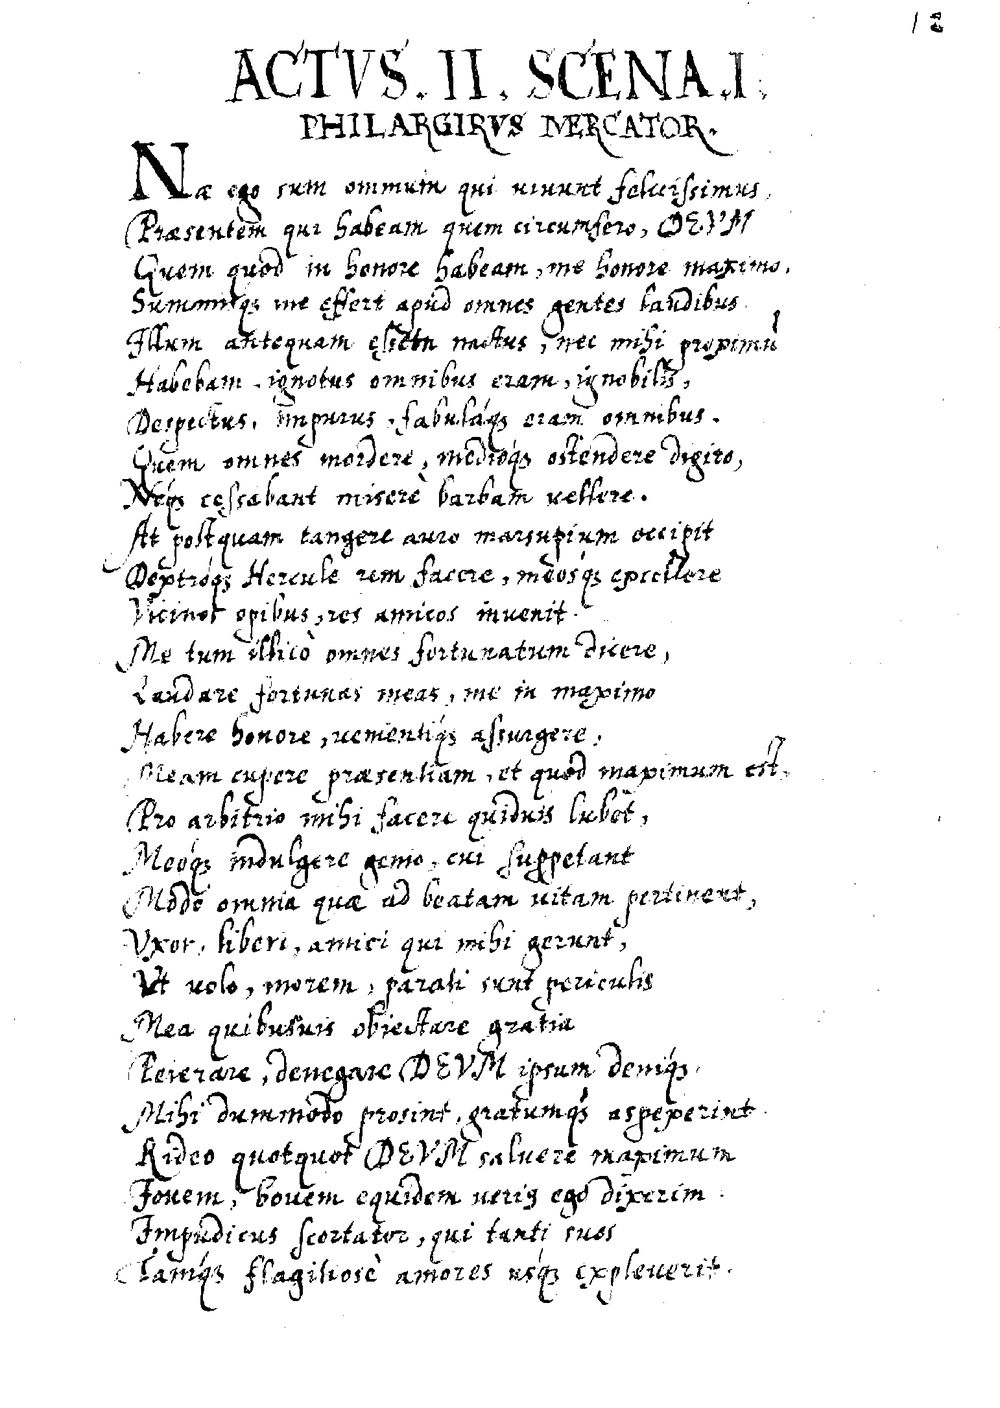 12
ACTVS. II. SCENA. I.
PHILARGIRVS MERCATOR.
Næ ego sum omnium qui uiuunt felicissimus,
Præsentem qui habeam quem circumfero, DEVM
Quem quod in honore habeam, me honore maximo,
Summisq; me effert apud omnes gentes laudibus
Illum antequam nactus, nec mihi propimũ
Habebam. ignotus omnibus eram, ignobilis,
Despectus, impurus, fabulaq́; eram omnibus.
Quem omnes mordere, medioq́; ostendere digito,
Neq́; cessabant miserè barbam uellere.
At postquam tangere auro marsupium occipit
Dextroq́; Hercule rem facere, meosq́; excellere
Vicinos opibus, res amicos inuenit.
Me tum illicò omnes fortunatum dicere,
Laudare fortunas meas, me in maximo
Habere honore, uementiq́; assurgere,
Meam cupere præsentiam, et quod maximum est,
Pro arbitrio mihi facere quiduis lubet,
Meoq́; indulgere genio, cui suppetant
Modò omnia quæ ad beatam uitam pertinent,
Vxor, liberi, amici qui mihi gerunt,
Vt uolo, morem, parati sunt periculis
Mea quibusuis obiectare gratia
Peierare, denegare DEVM ipsum deniq́;
Mihi dummodo prosint, gratumq́; aspexerint.
Rideo quotquot DEVM saluere maximum
Iouem, bouem equidem ueriq ego dixerim.
Impudicus scortator, qui tanti suos
Tamq́; flagitiosè amores usq́; expleuerit.